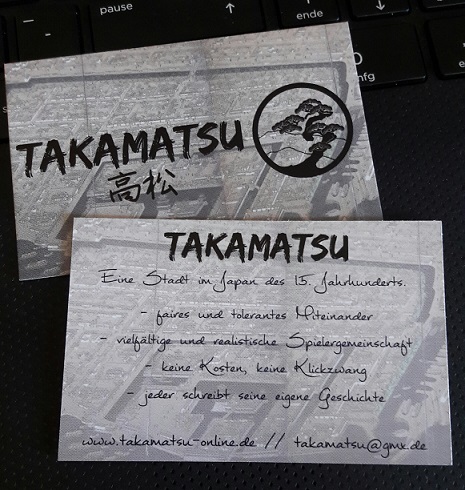 pause
ende
fg
TAKAMATSU
高松
TAKAMATSU
Eine Stadt im Japan des 15. Jahrhunderts.
- faires und tolerantes Miteinander
- vielfältige und realistische Spielergemeinschaft
- keine Kosten, keine Klickzwang
- jeder schreibt seine eigene Geschichte
www.takamatsu-online.de // takamatsu@gmx.de